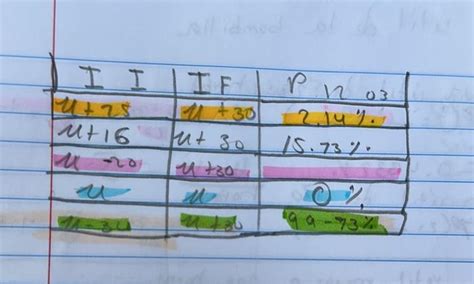 I I I F P 12 03
μ + 2S μ + 30 2.14%
μ + 16 μ + 30 15.73%
μ - 20 μ + 30
μ μ 0%
μ - 30 μ + 30 99-73%